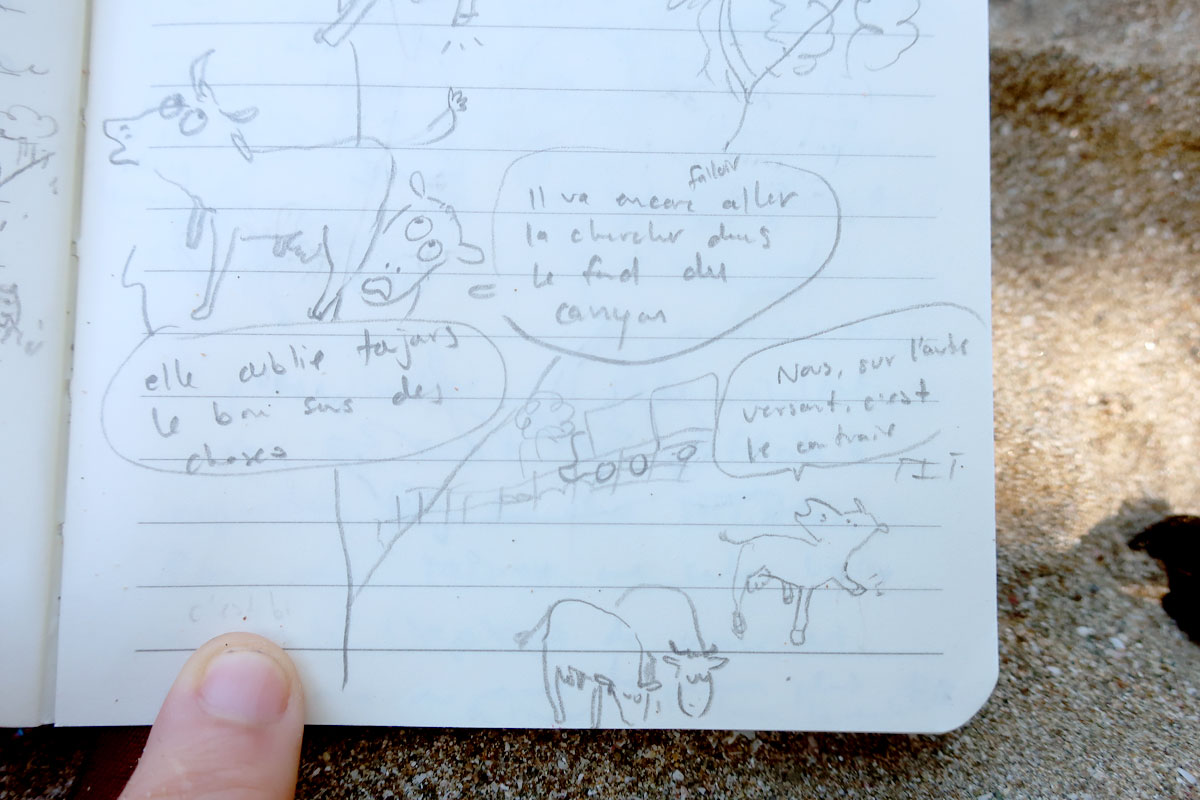 falloir
Il va encore aller
la chercher dans
le fond du
canyon
elle oublie toujours
le bon sens des
choses
Nous, sur l'autre
versant, c'est
le contraire